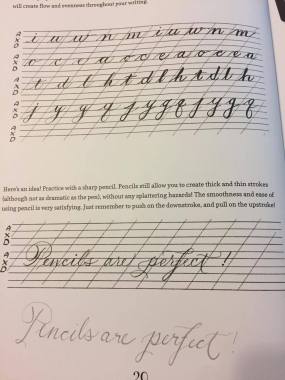 will create flow and evenness throughout your writing.
A
X i u w n m i u w n m
D
A
X o c e v a o c e a o c e a
D
A
X t d l h t d l h t d l h
D
A
X j y g q j y g q j y g q
D
A
X
D
Here's an idea! Practice with a sharp pencil. Pencils still allow you to create thick and thin strokes
(although not as dramatic as the pen), without any splattering hazards! The smoothness and ease of
using pencil is very satisfying. Just remember to push on the downstroke, and pull on the upstroke!
A
X
D
A
X Pencils are perfect!
D
Pencils are perfect!
20